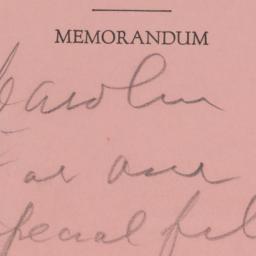 MEMORANDUM
Carolyn
For our
special fil